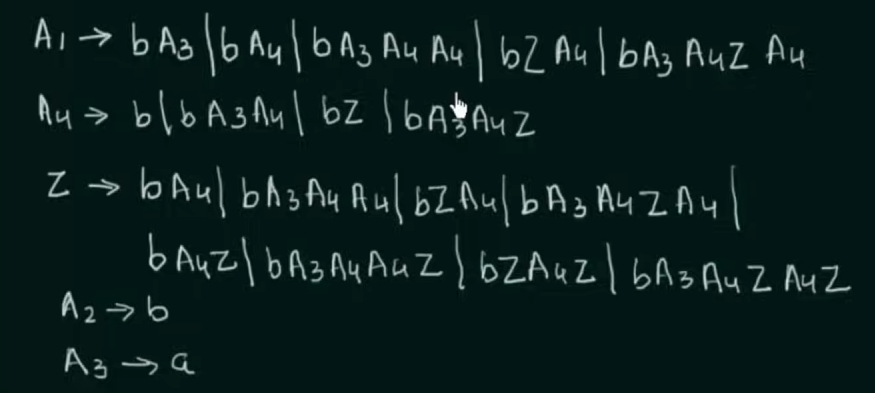 A₁ → bA₃ | bA₄ | bA₃A₄A₄ | bZA₄ | bA₃A₄ZA₄
A₄ → b | bA₃A₄ | bZ | bA₃A₄Z
Z → bA₄ | bA₃A₄A₄ | bZA₄ | bA₃A₄ZA₄ |
bA₄Z | bA₃A₄A₄Z | bZA₄Z | bA₃A₄ZA₄Z
A₂ → b
A₃ → a